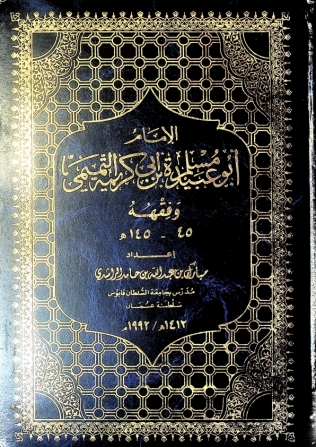 الإمام
أبو عبيدة مسلم بن أبي كريمة التميمي
وفقهه
٤٥ - ١٤٥ هـ
إعداد
مبارك بن عبدالله بن حامد الراشدي
مدرس بجامعة السلطان قابوس
سلطنة عمان
١٤١٢هـ / ١٩٩٢م